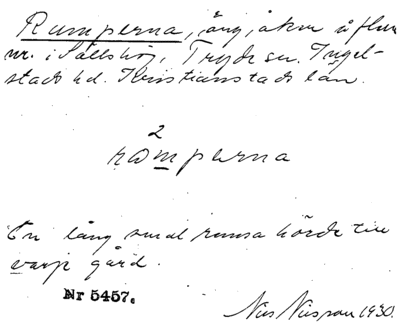 Rumperna, äng, åker å flera
nr. i Sållshög, Tryde sn. Ingel-
stads hd. Kristianstads län.
2
ramperna
En lång smal remsa hörde till
varje gård.
Nr 5457.
Nils Nilsson 1930.